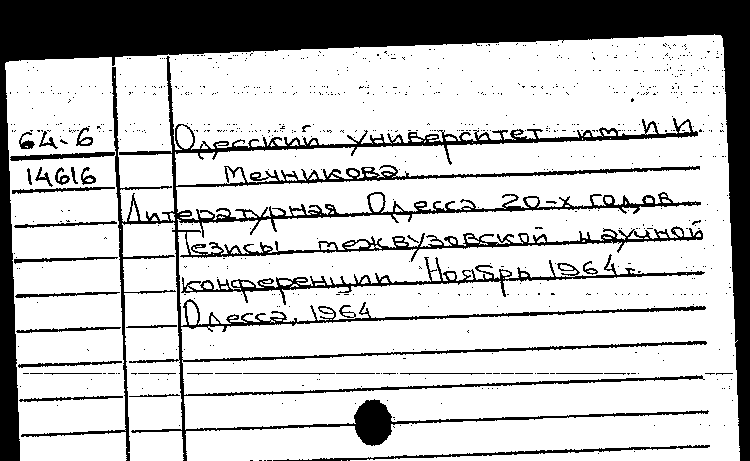 64-6 Одесский университет им. И.И.
14616 Мечникова.
Литературная Одесса 20-х годов
Тезисы межвузовской научной
конференции Ноябрь 1964 г.
Одесса, 1964